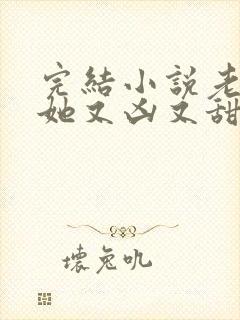 完結小說老
她又凶又甜
壞兔吼